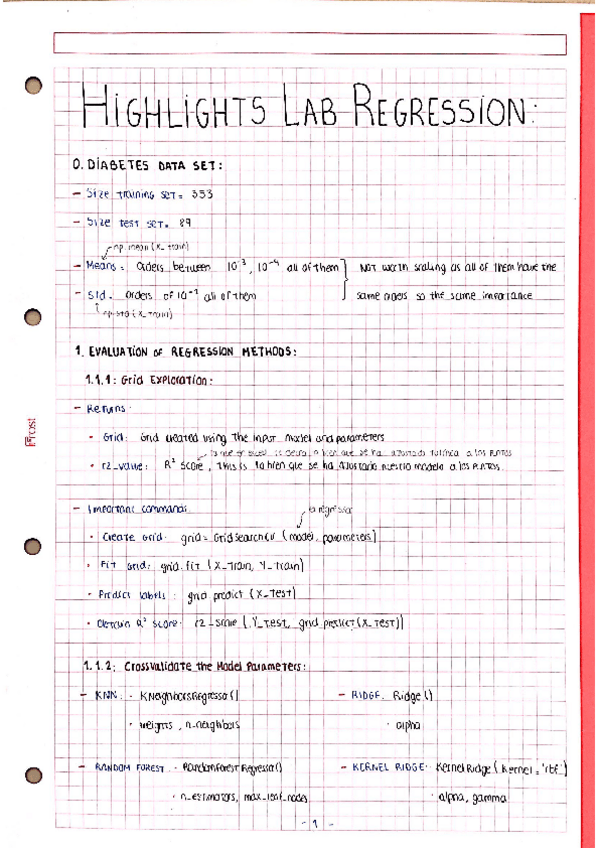 HIGHLIGHTS LAB REGRESSION:
0. DIABETES DATA SET:
- Size training set = 353
- Size test set = 89
np.mean(X_train)
- Means: Orders between 10^-3, 10^-4 all of them
- Std. orders of 10^-2 all of them
np.std(X_train)
NOT worth scaling as all of them have the
same orders so the same importance
1. EVALUATION OF REGRESSION METHODS:
1.1.1: Grid EXPLORATION:
- Returns:
· Grid: Grid created using the input model and parameters
· r2_value: R² score, this is lo bien que se ha ajustado nuestro modelo a los puntos.
- Important commands
la regresor
· Create Grid: grid = GridSearchCV (model, parameters)
· Fit Grid: grid.fit (X_Train, Y_Train)
· Predict labels: grid.predict (X_Test)
· Obtain R² score: r2_score (Y_Test, grid.predict(X_Test))
1.1.2: Crossvalidate the Model Parameters:
- KNN: · KNeighborsRegressor()
· weights, n_neighbors
- RIDGE. Ridge()
· alpha
- RANDOM FOREST · RandomForestRegressor()
· n_estimators, max_leaf_nodes
- KERNEL RIDGE · KernelRidge (kernel = 'rbf')
· alpha, gamma
- 1 -